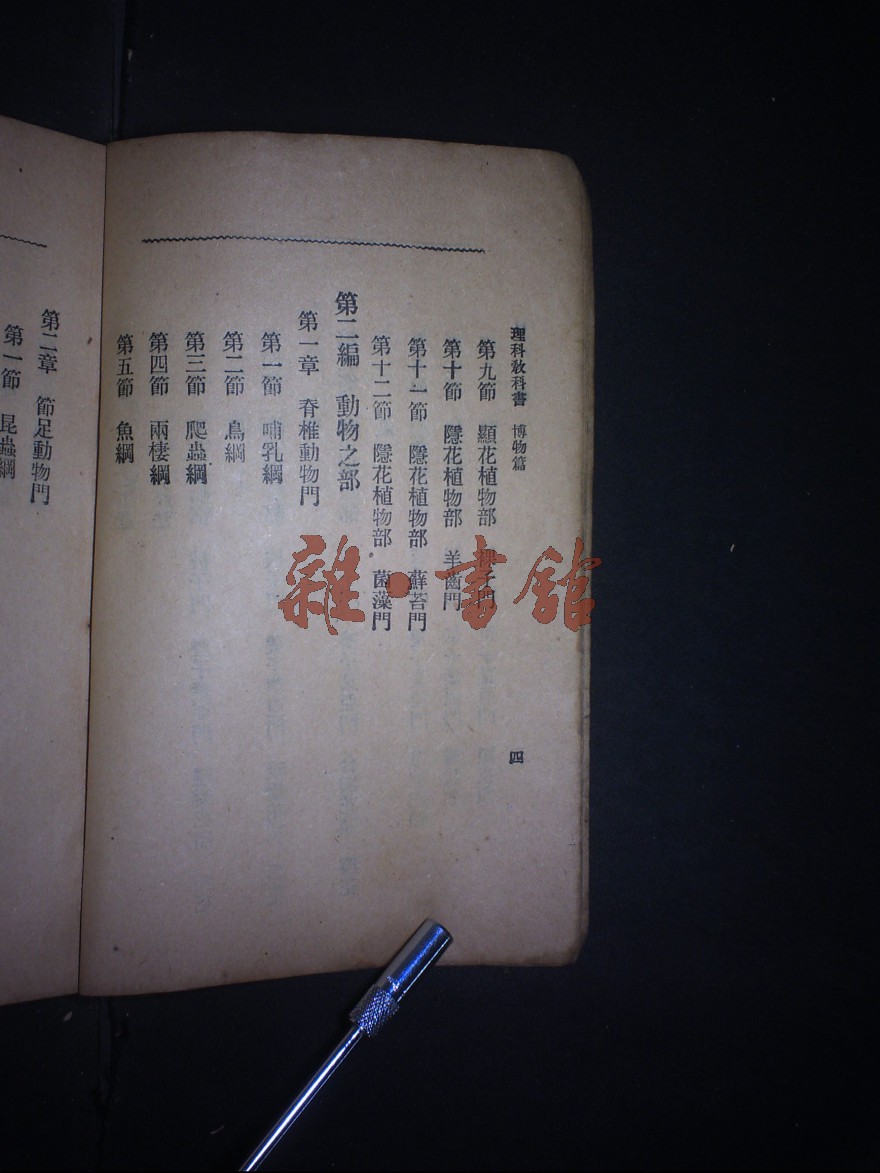 理科教科書 博物篇
四
第九節 顯花植物部 裸子門
第十節 隱花植物部 羊齒門
第十一節 隱花植物部 蘚苔門
第十二節 隱花植物部 菌藻門
第二編 動物之部
第一章 脊椎動物門
第一節 哺乳綱
第二節 鳥綱
第三節 爬蟲綱
第四節 兩棲綱
第五節 魚綱
第二章 節足動物門
第一節 昆蟲綱
雜·書館